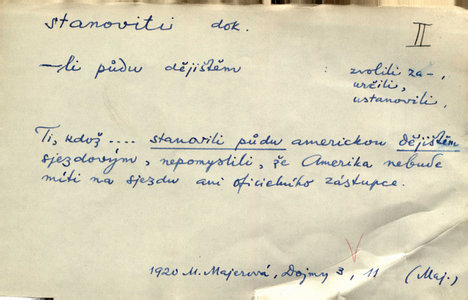 stanoviti dok. II
—li půdu dějištěm zvolili za-,
určili,
ustanovili,
Ti, kdož .... stanovili půdu americkou dějištěm
sjezdovým, nepomyslili, že Amerika nebude
míti na sjezdu ani oficielního zástupce.
1920 M. Majerová, Dojmy 3, 11 (Maj.)